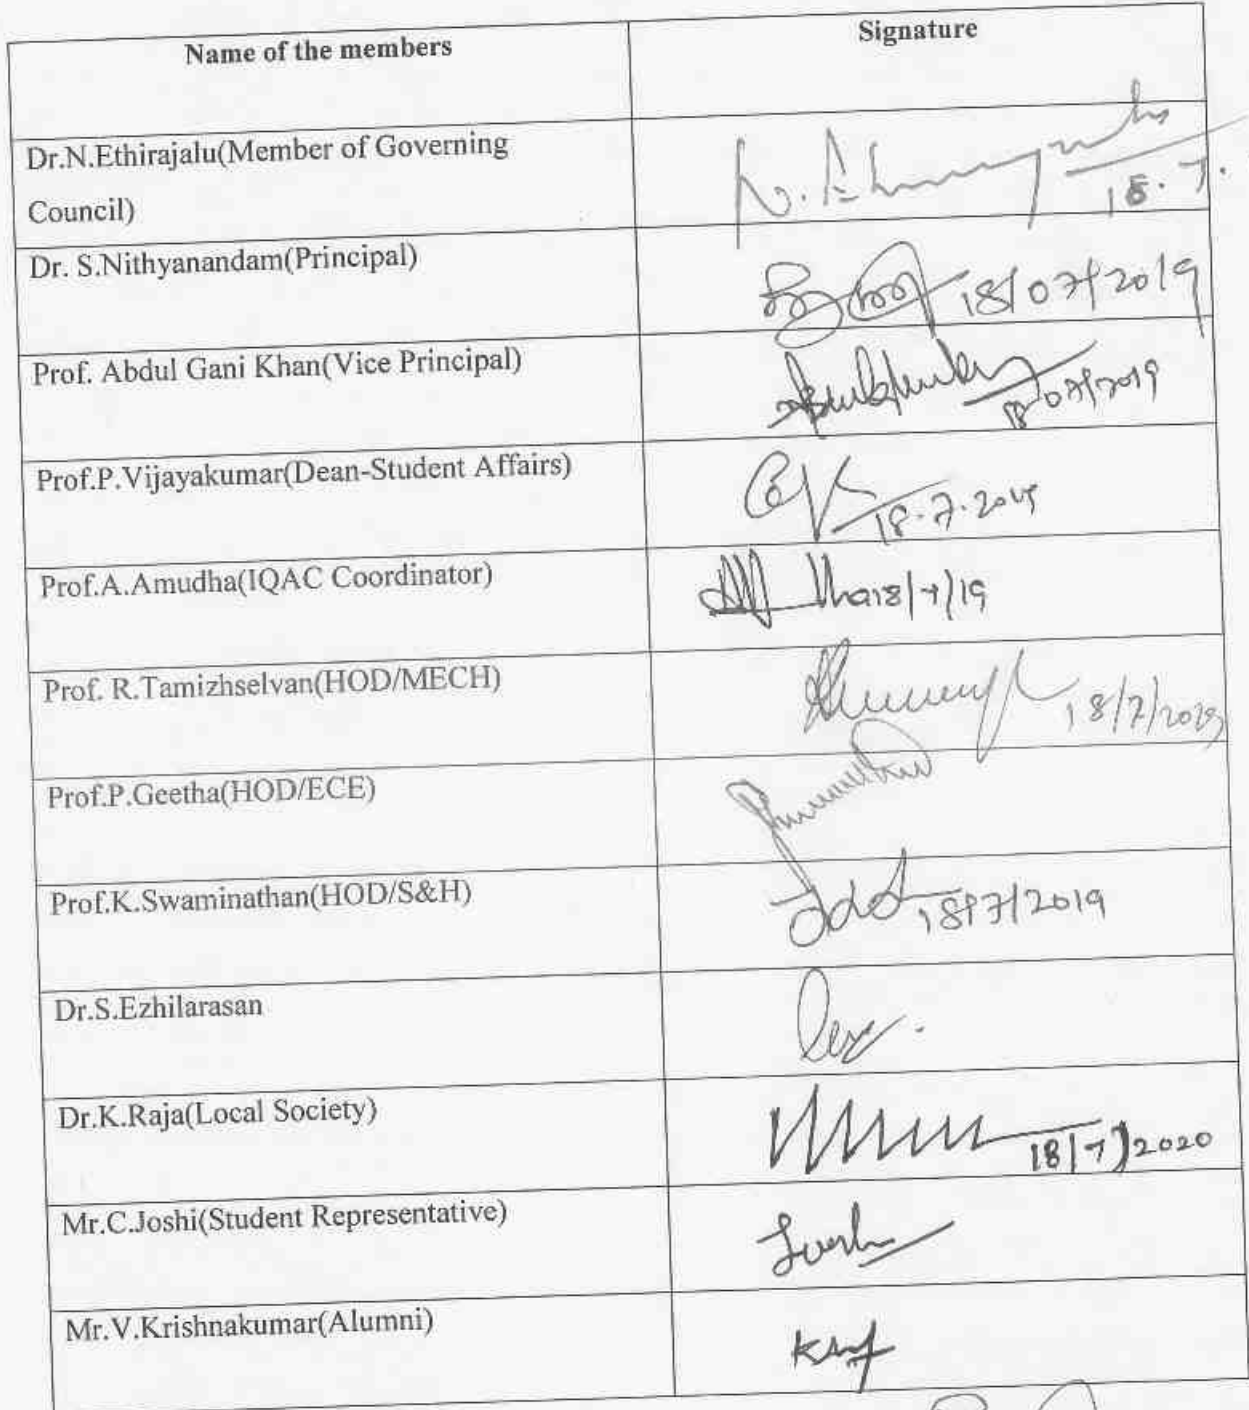 Name of the members
Signature
Dr.N.Ethirajalu(Member of Governing
Council)
18.7.
Dr. S.Nithyanandam(Principal)
18/07/2019
Prof. Abdul Gani Khan(Vice Principal)
18/07/2019
Prof.P.Vijayakumar(Dean-Student Affairs)
18.7.2019
Prof.A.Amudha(IQAC Coordinator)
18/7/19
Prof. R.Tamizhselvan(HOD/MECH)
18/7/2019
Prof.P.Geetha(HOD/ECE)
Prof.K.Swaminathan(HOD/S&H)
18/7/2019
Dr.S.Ezhilarasan
Dr.K.Raja(Local Society)
18/7/2020
Mr.C.Joshi(Student Representative)
Mr.V.Krishnakumar(Alumni)